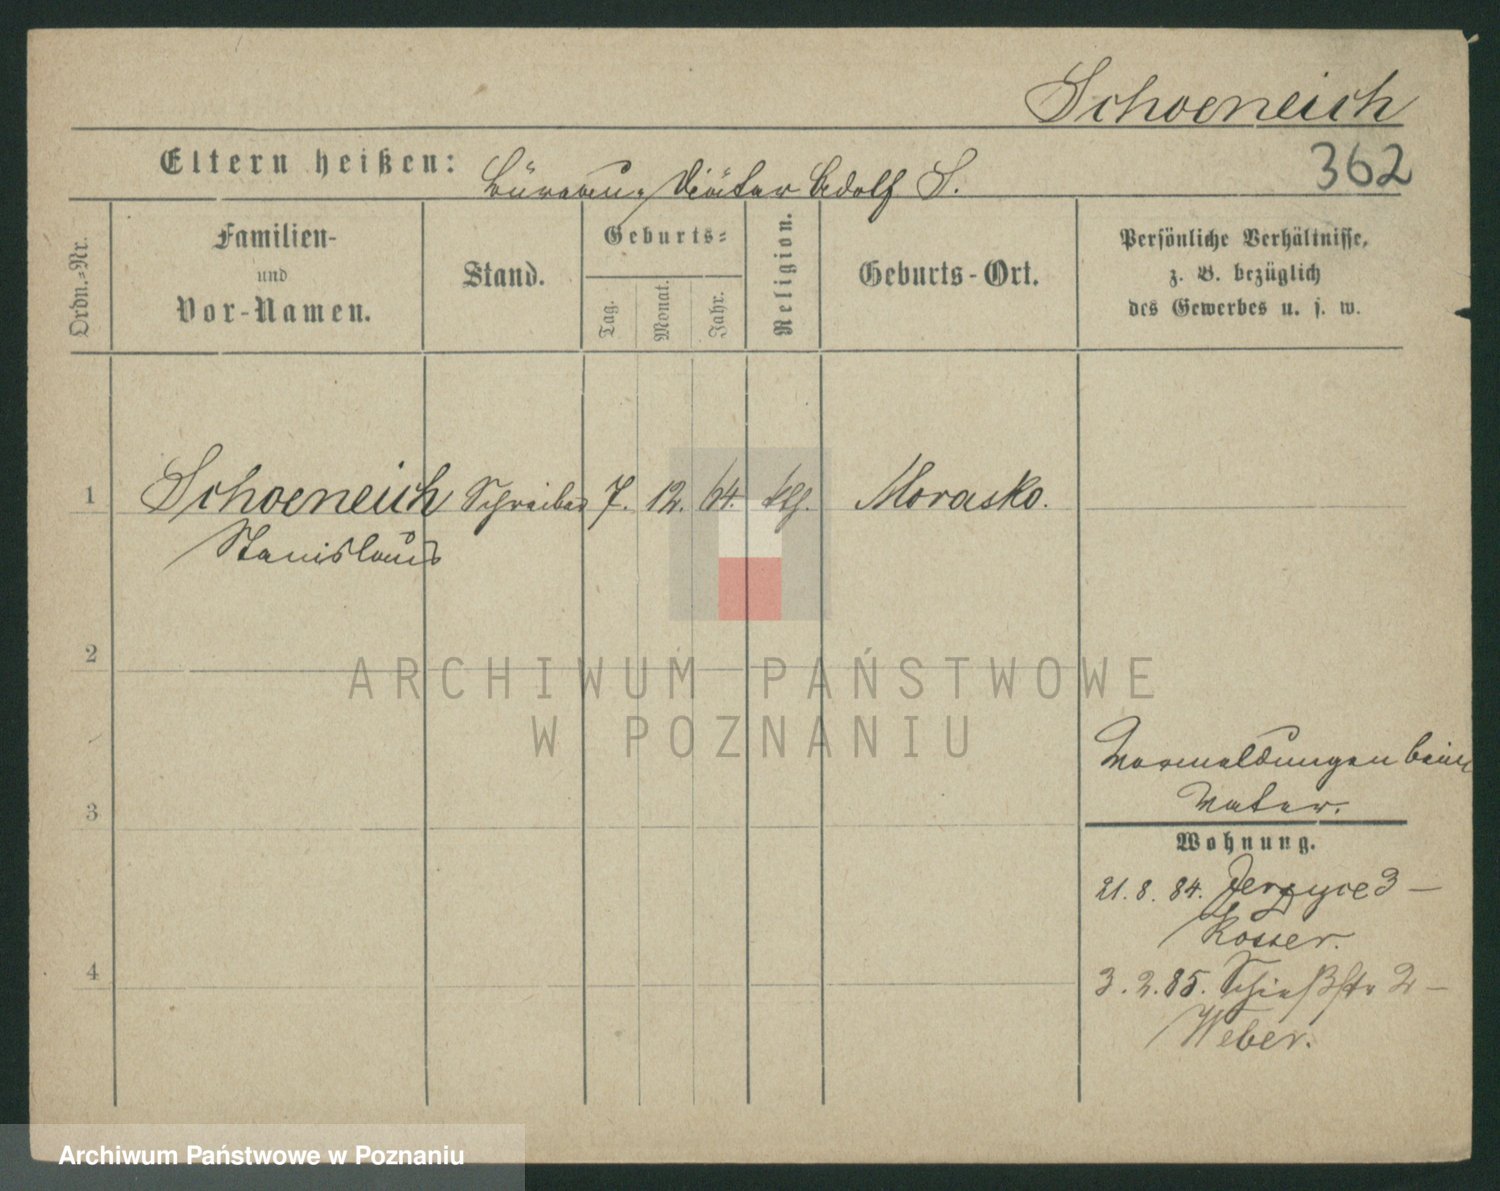 Schoeneich
Eltern heißen: Büreau Diätar Adolf S.
362
Ordn.-Nr.
Familien-
und
Vor-Namen.
Stand.
Geburts-
Tag.
Monat.
Jahr.
Religion.
Geburts-Ort.
Persönliche Verhältnisse,
z. B. bezüglich
des Gewerbes u. s. w.
1 Schoeneich Schreiber 7. 12. 64. kth. Morasko.
Stanislaus
2
ARCHIWUM PAŃSTWOWE
W POZNANIU
Vormeldungen beim
Vater.
3
Wohnung.
21. 8. 84. Jerzyce 3 –
Kosser.
4
3. 2. 85. Schießstr 2 –
Weber.
Archiwum Państwowe w Poznaniu